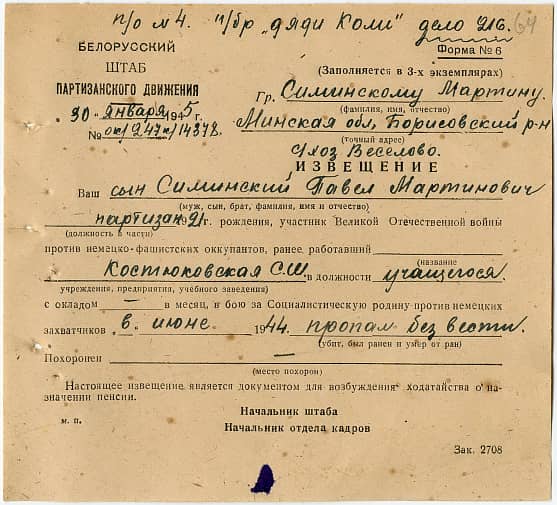 п/о № 4. п/бр „дяди Коли" дело 216. 64
БЕЛОРУССКИЙ
ШТАБ
ПАРТИЗАНСКОГО ДВИЖЕНИЯ
30 января 1945 г.
№ ок/247п/14378.
Форма № 6
(Заполняется в 3-х экземплярах)
Гр. Симинскому Мартину.
(фамилия, имя, отчество)
Минская обл, Борисовский р-н
(точный адрес)
Веселово.
ИЗВЕЩЕНИЕ
Ваш сын Симинский Павел Мартинович
(муж, сын, брат, фамилия, имя и отчество)
партизан 21 г. рождения, участник Великой Отечественной войны
(должность в части)
против немецко-фашистских оккупантов, ранее работавший
(название
Костюковская С.Ш. в должности учащегося.
учреждения, предприятия, учебного заведения)
с окладом — в месяц, в бою за Социалистическую родину против немецких
захватчиков в июне 1944 пропал без вести.
(убит, был ранен и умер от ран)
Похоронен —
(место похорон)
Настоящее извещение является документом для возбуждения ходатайства о назначении пенсии.
Начальник штаба
м. п. Начальник отдела кадров
Зак. 2708